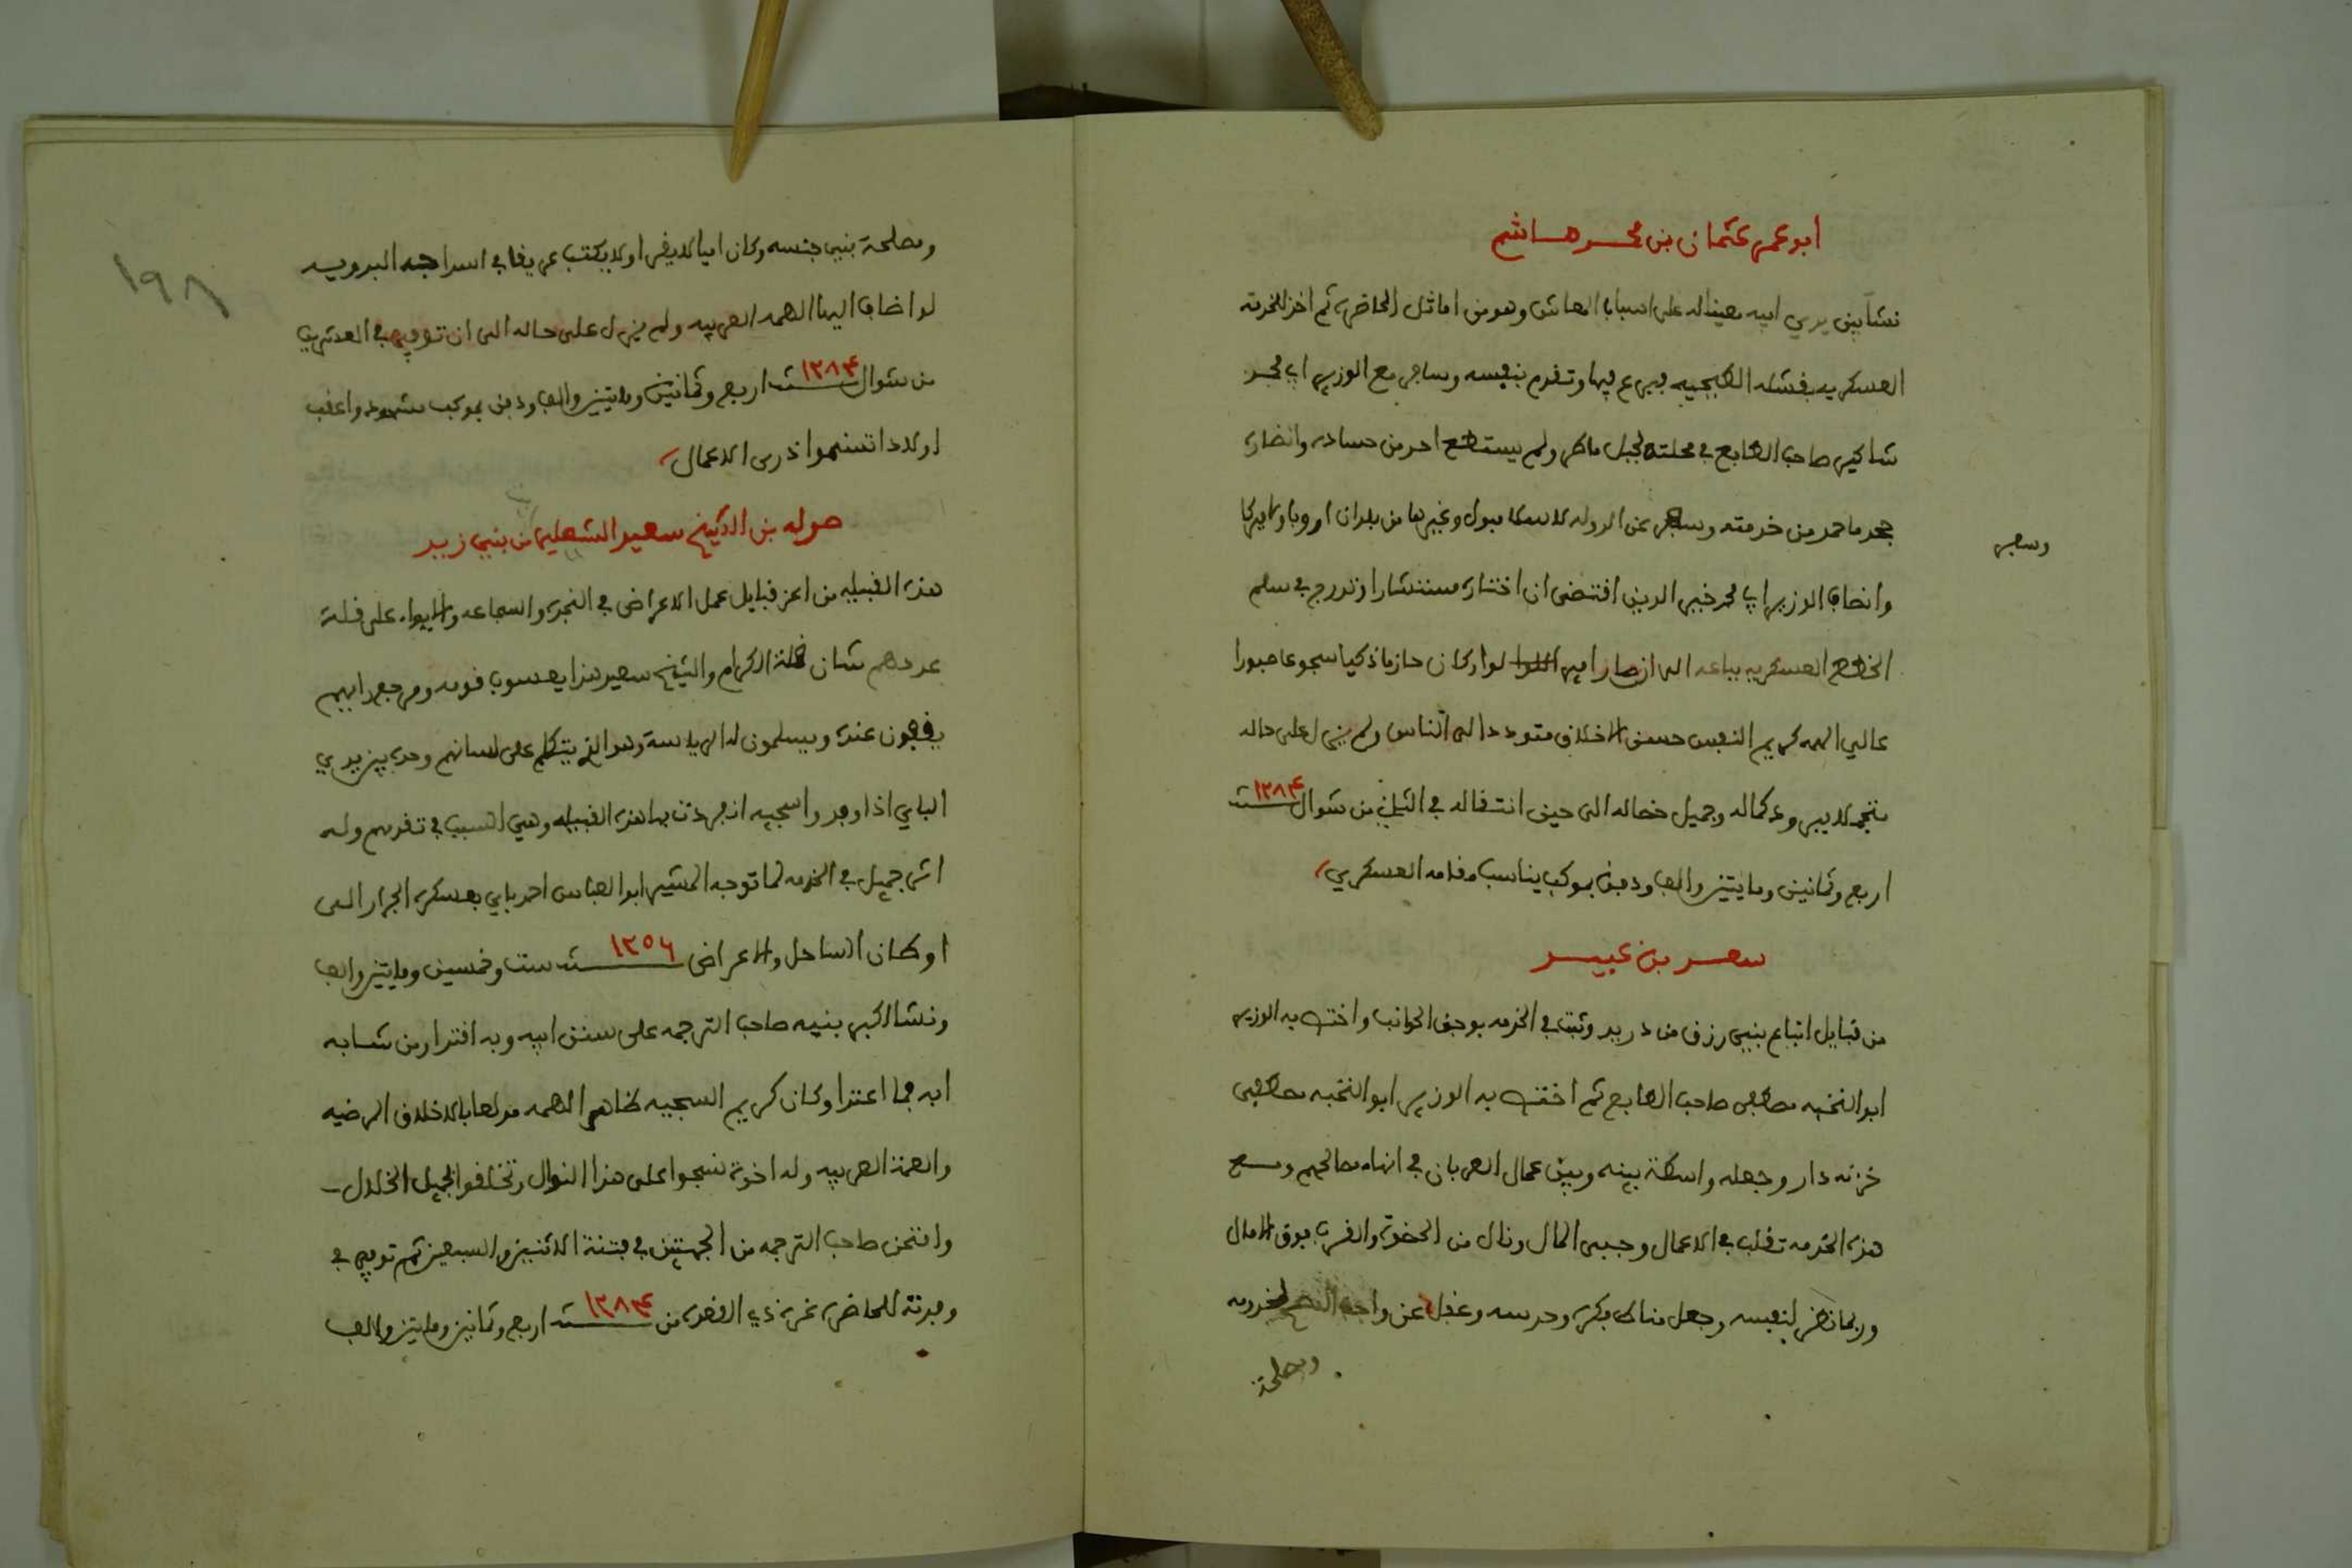 ابو عمر عثمان بن محمد هاشم
نشا بين يدي ابيه معينا له على اسباب المعاش وهو من اماثل الحاضرة ثم اخذ للخدمة
العسكريه بقشله الطبجيه فبرع فيها وتقدم بنفسه وسافر مع الوزير ابي محمد
شاكير صاحب الطابع في محلته لجبل ماطر ولم يستطع احد من حساده وانظاره
جحد ما حمد من خدمته وسافر عن الدوله لاسطامبول وغيرها من بلدان اوروبا وامريكا
وسفر
وانصاف الوزير ابي محمد خير الدين اقتضى ان اختاره مستشارا وتدرج في سلم
الخطط العسكريه بباعه الى ان صار امير اللوا لوا وكان حازما ذكيا شجوعا صبورا
عالي الهمه كريم النفس حسن الاخلاق متوددا الى الناس ولم يزل على حاله
متجملا ببرود كماله وجميل خصاله الى حين انتقاله في الثاني من شوال سنة ١٢٨٤
اربع وثمانين ومايتين والف ودفن بموكب يناسب مقامه العسكري
سعد بن عبيد
من قبايل اتباع بنيى رزق من دريد وثبت في الخدمه بوجق الحوانب واختص به الوزير
ابو النخبه مصطفى صاحب الطابع ثم اختص به الوزير ابو النخبه مصطفى
خزنه دار وجعله واسطة بينه وبين عمال العربان في انهاء مصالحهم ومع
هذه الخدمه تقلب في الاعمال وجبى المال ونال من الحظوة والقرب فوق الامال
وربما نظر لنفسه وجعل مناط فكره وحدسه وغفل عن واجب النصح لمخدومه
ومصلحة
١٩٨
ومصلحة بنيى جنسه وكان اميا لا يقرا ولا يكتب عريقا في اسراجه البدويه
لو اضاف اليها الهمه العربيه ولم يزل على حاله الى ان توفي في العشرين
من شوال سنة ١٢٨٤ اربع وثمانين ومايتين والف ودفن بموكب مشهود واعقب
اولادا تسنموا ذرى الاعمال
صوله بن الشيخ سعيد الشعليا من بنيى زيد
هذه القبيله من اعز قبايل عمل الاعراض في النجدة والشجاعه والايواء على قلة
عددهم شان قلة الكرام والشيخ سعيد هذا يعسوب قومه ومرجع رايهم
يقفون عنده ويسلمون له الرياسة وهو الذي يتكلم على لسانهم وحده بين يدي
الباي اذا وفدوا سجيه انفردت بها هذه القبيله وهي السبب في تقدمهم وله
اثر جميل في الخدمه لما توجه المشير ابو العباس احمد باي بعسكره الجرار الى
اوطان الساحل والاعراض سنة ١٢٥٦ ست وخمسين ومايتين والف
ونشا اكبر بنيه صاحب الترجمه على سنن ابيه وبه اقتدا ومن شابه
ابه فما اعتدا وكان كريم السجيه ظاهر الهمه مولعا بالاخلاق المرضيه
والهمة العربيه وله اخوة نسجوا على هذا المنوال وتخلقوا بجميل الخلال
وامتحن صاحب الترجمه من الجهتين في فتنة الاثنين والسبعين ثم توفي في
وفدته للحاضرة غرة ذي القعدة من سنة ١٢٨٤ اربع وثمانين ومايتين والف